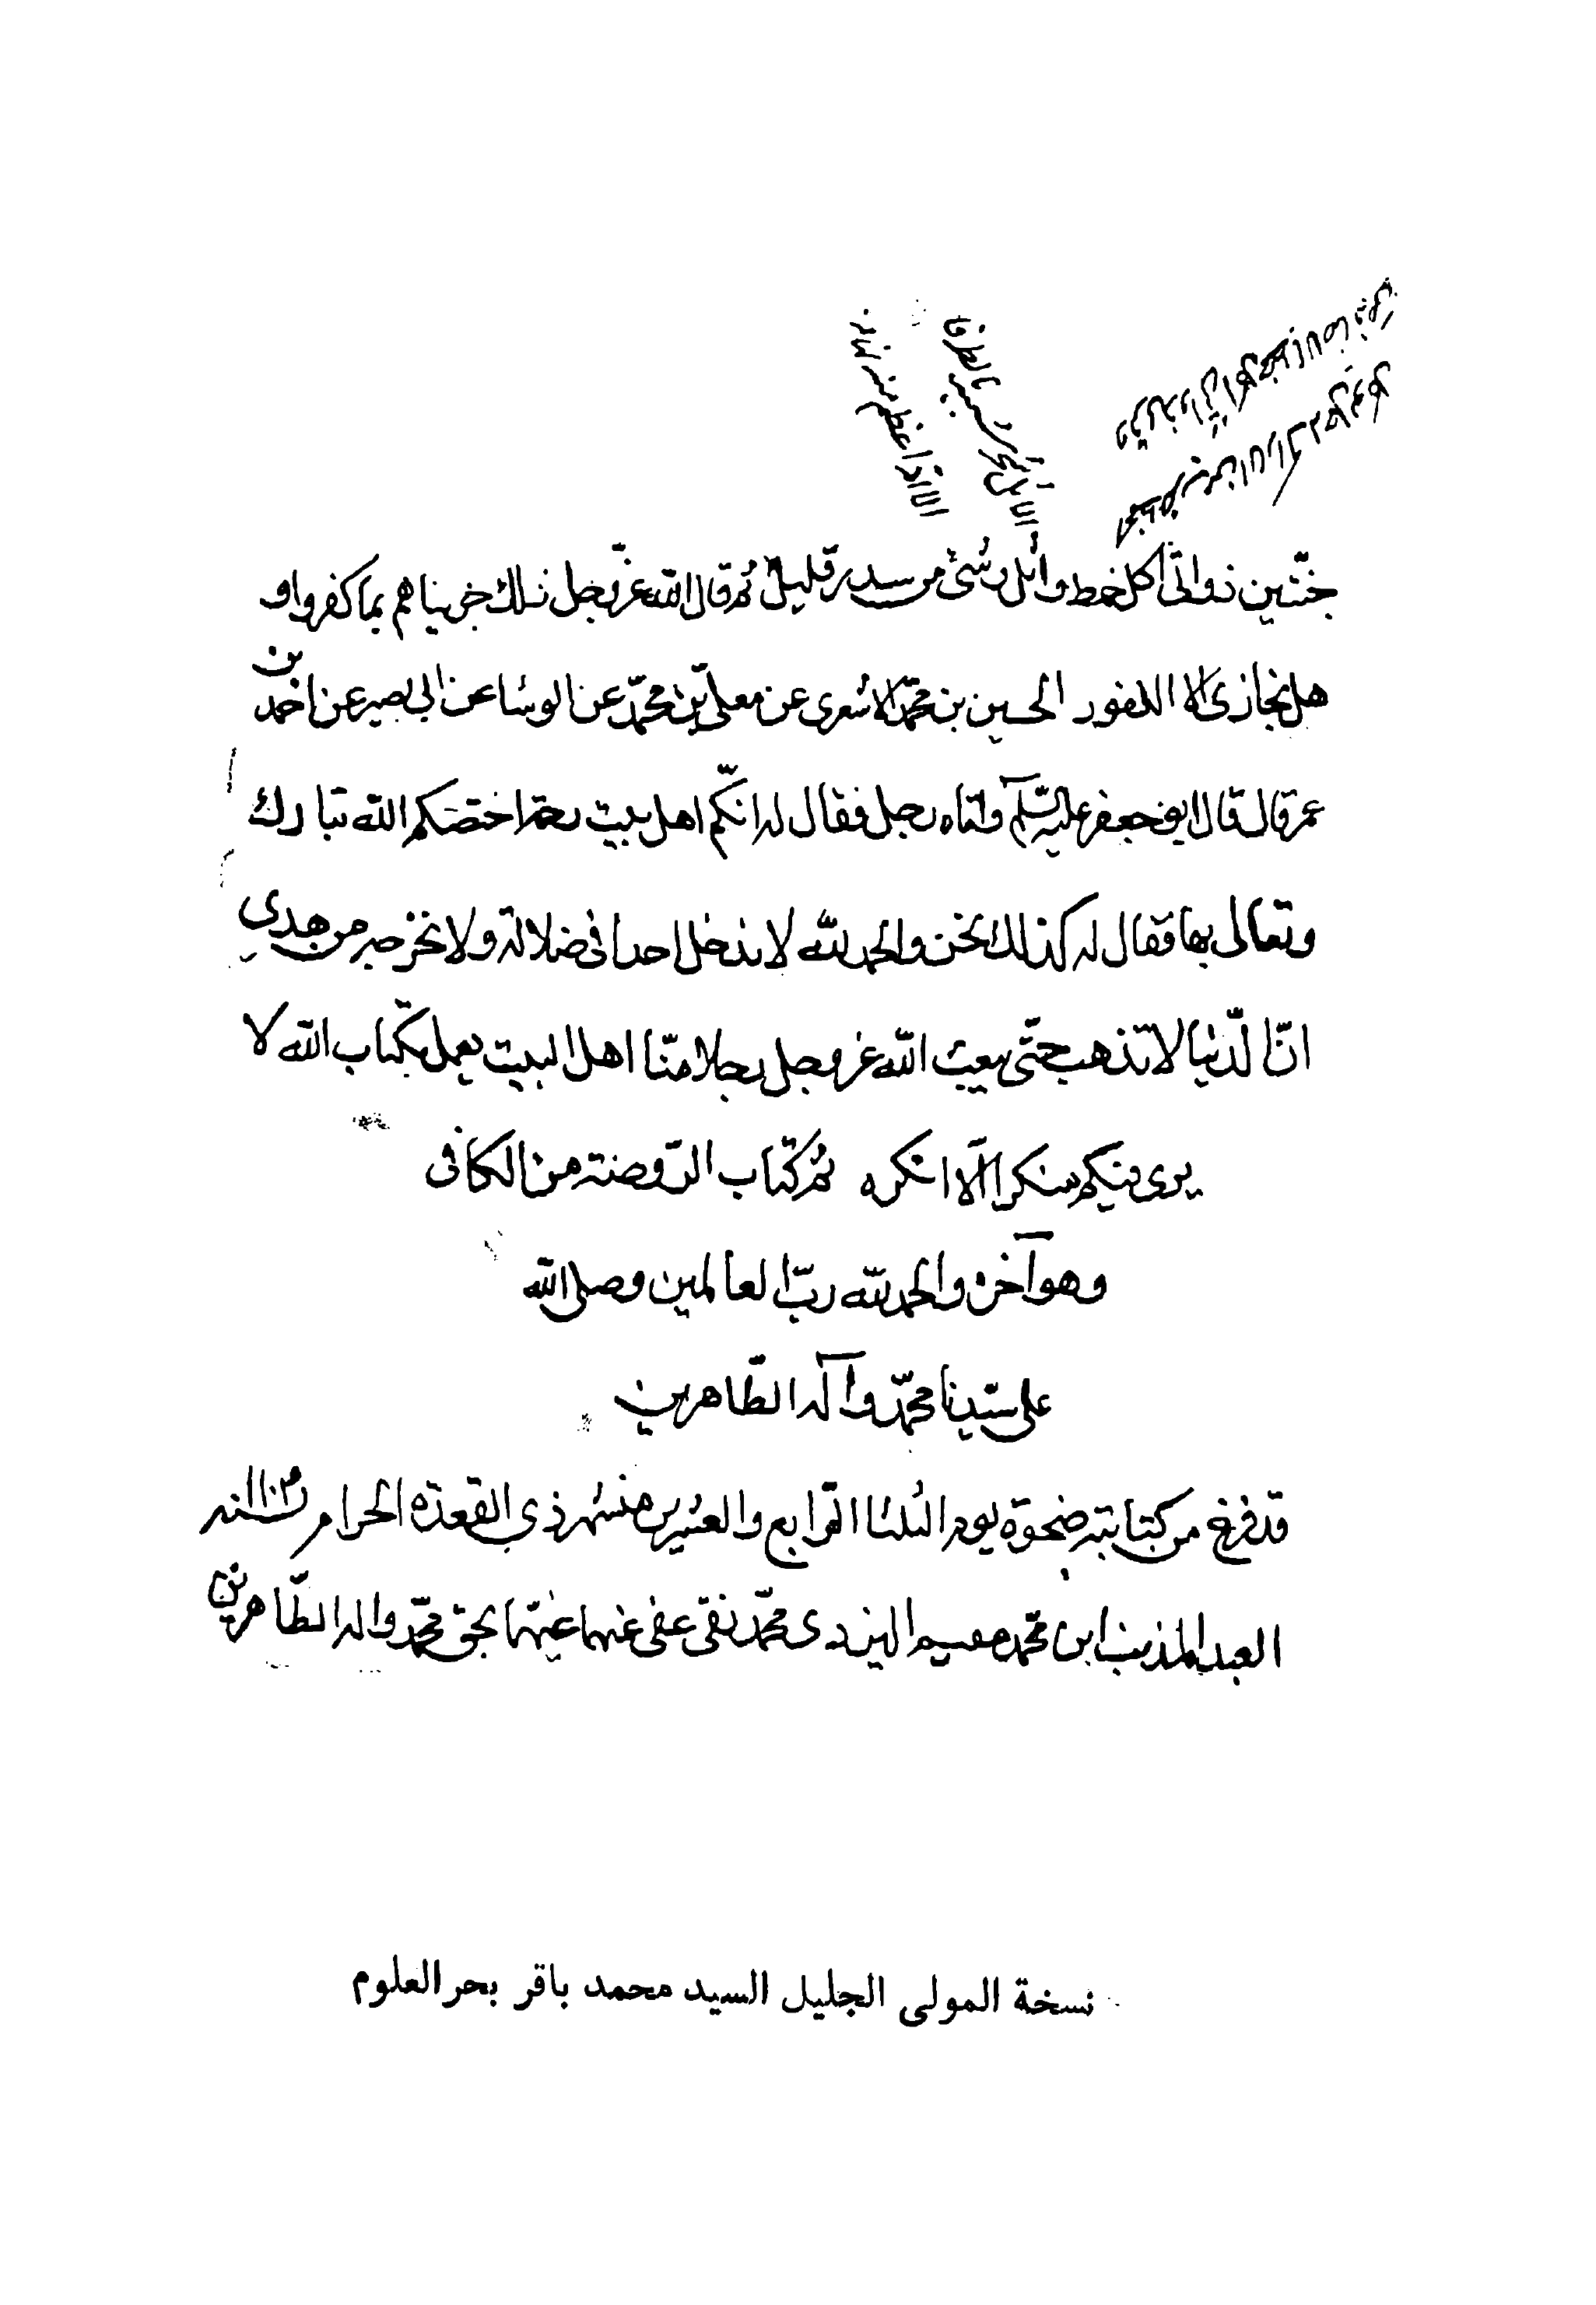 الاثل شجر شبيه بالطرفا
الا انه اعظم منه
جنّتين ذواتى اكل خمط واثل وشئ من سدر قليل ثم قال الله عزّ وجل ذلك جزيناهم بما كفروا و
هل يجازى الا الكفور الحسين بن محمّد الاشعرى عن معلى بن محمّد عن الوشا عن ابى بصير عن احمد بن
عمر قال قال ابو جعفر عليه السّلم واتاه رجل فقال له انكّم اهل بيت رحمة اختصكم الله تبارك
وتعالى بها فقال له كذلك نحن والحمد لله لا ندخل احدا فى ضلالة ولا نخرجه من هدي
انّ الدّنيا لا تذهب حتّى يبعث الله عز وجل رجلا منّا اهل البيت يعمل بكتاب الله لا
يرى فيكم منكرا الّا انكره تم كتاب الرّوضة من الكافى
وهو آخره والحمد لله ربّ العالمين وصلى الله
على سيّدنا محمّد وآله الطّاهرين
قد فرغ من كتابته ضحوة يوم الثلثا الرّابع والعشرين من شهر ذي القعدة الحرام سنه
العبد المذنب ابن محمّد مقيم اليزدى محمّد تقى عفى عنهما بحق محمّد واله الطّاهرين
نسخة المولى الجليل السيد محمد باقر بحر العلوم